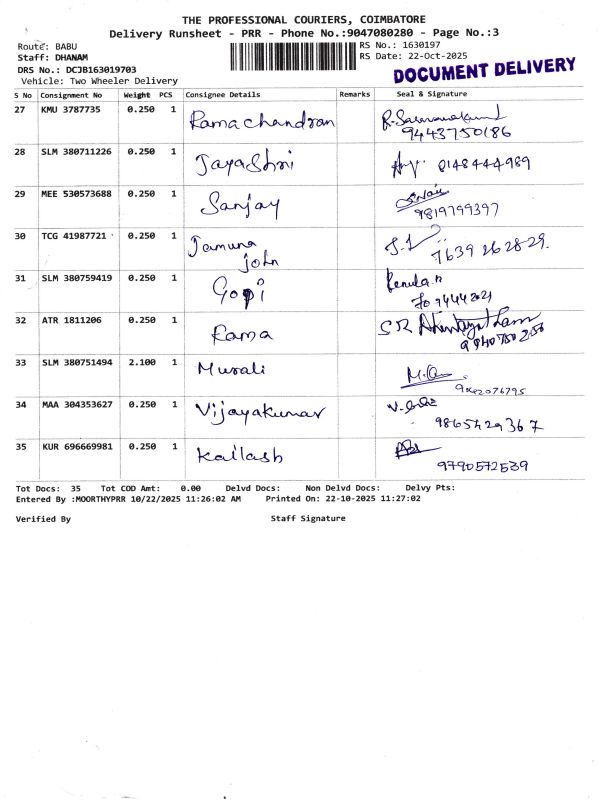 THE PROFESSIONAL COURIERS, COIMBATORE
Delivery Runsheet - PRR - Phone No.:9047080280 - Page No.:3
Route: BABU RS No.: 1630197
Staff: DHANAM RS Date: 22-Oct-2025
DRS No.: DCJB163019703
Vehicle: Two Wheeler Delivery
DOCUMENT DELIVERY
S No Consignment No Weight PCS Consignee Details Remarks Seal & Signature
27 KMU 3787735 0.250 1 Ramachandran
9443750186
28 SLM 380711226 0.250 1 Jayashri
29 MEE 530573688 0.250 1 Sanjay
9819799397
30 TCG 41987721 0.250 1 Jamuna
john
7639262829.
31 SLM 380759419 0.250 1 Gopi
32 ATR 1811206 0.250 1 Rama
33 SLM 380751494 2.100 1 Murali
34 MAA 304353627 0.250 1 Vijayakumar
9865429367
35 KUR 696669981 0.250 1 Kailash
9790572539
Tot Docs: 35 Tot COD Amt: 0.00 Delvd Docs: Non Delvd Docs: Delvy Pts:
Entered By :MOORTHYPRR 10/22/2025 11:26:02 AM Printed On: 22-10-2025 11:27:02
Verified By Staff Signature